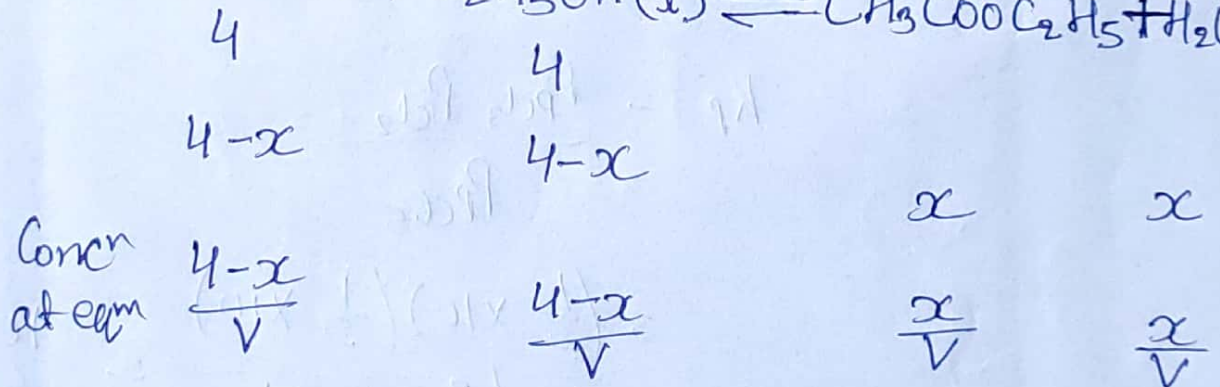 (l) ⟵ CH3COOC2H5+H2
4 4
4-x 4-x
x x
Concn at eqm (4-x)/V (4-x)/V x/V x/V